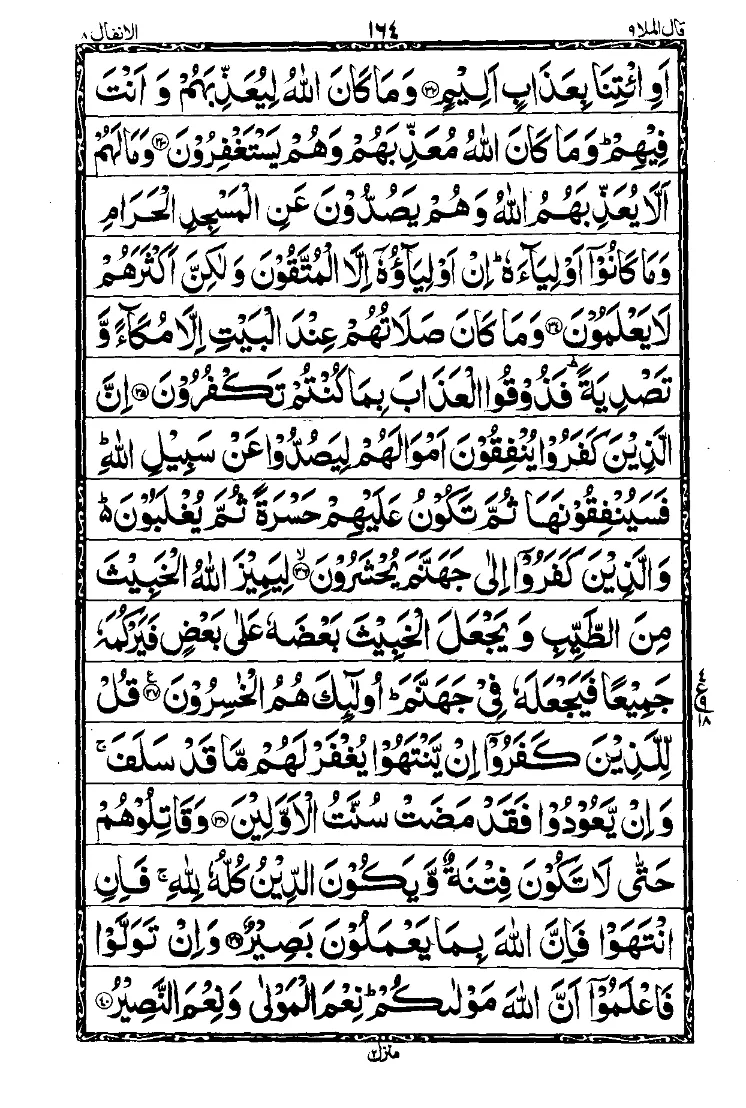 قال الملا ٩ ١٦٤ الانفال ٨
اَوِ ائْتِنَا بِعَذَابٍ اَلِيْمٍ ﴿۳۲﴾ وَمَا كَانَ اللّٰهُ لِيُعَذِّبَهُمْ وَ اَنْتَ
فِيْهِمْ ؕ وَمَا كَانَ اللّٰهُ مُعَذِّبَهُمْ وَهُمْ يَسْتَغْفِرُوْنَ ﴿۳۳﴾ وَمَا لَهُمْ
اَلَّا يُعَذِّبَهُمُ اللّٰهُ وَهُمْ يَصُدُّوْنَ عَنِ الْمَسْجِدِ الْحَرَامِ
وَمَا كَانُوْۤا اَوْلِيَآءَهٗ ؕ اِنْ اَوْلِيَآؤُهٗۤ اِلَّا الْمُتَّقُوْنَ وَلٰكِنَّ اَكْثَرَهُمْ
لَا يَعْلَمُوْنَ ﴿۳۴﴾ وَمَا كَانَ صَلَاتُهُمْ عِنْدَ الْبَيْتِ اِلَّا مُكَآءً وَّ
تَصْدِيَةً ؕ فَذُوْقُوا الْعَذَابَ بِمَا كُنْتُمْ تَكْفُرُوْنَ ﴿۳۵﴾ اِنَّ
الَّذِيْنَ كَفَرُوْا يُنْفِقُوْنَ اَمْوَالَهُمْ لِيَصُدُّوْا عَنْ سَبِيْلِ اللّٰهِ ؕ
فَسَيُنْفِقُوْنَهَا ثُمَّ تَكُوْنُ عَلَيْهِمْ حَسْرَةً ثُمَّ يُغْلَبُوْنَ ؕ
وَالَّذِيْنَ كَفَرُوْۤا اِلٰى جَهَنَّمَ يُحْشَرُوْنَ ﴿۳۶﴾ۙ لِيَمِيْزَ اللّٰهُ الْخَبِيْثَ
مِنَ الطَّيِّبِ وَيَجْعَلَ الْخَبِيْثَ بَعْضَهٗ عَلٰى بَعْضٍ فَيَرْكُمَهٗ
جَمِيْعًا فَيَجْعَلَهٗ فِيْ جَهَنَّمَ ؕ اُولٰٓئِكَ هُمُ الْخٰسِرُوْنَ ﴿۳۷﴾ع قُلْ
لِّلَّذِيْنَ كَفَرُوْۤا اِنْ يَّنْتَهُوْا يُغْفَرْ لَهُمْ مَّا قَدْ سَلَفَ ۚ
وَاِنْ يَّعُوْدُوْا فَقَدْ مَضَتْ سُنَّتُ الْاَوَّلِيْنَ ﴿۳۸﴾ وَقَاتِلُوْهُمْ
حَتّٰى لَا تَكُوْنَ فِتْنَةٌ وَّيَكُوْنَ الدِّيْنُ كُلُّهٗ لِلّٰهِ ۚ فَاِنِ
انْتَهَوْا فَاِنَّ اللّٰهَ بِمَا يَعْمَلُوْنَ بَصِيْرٌ ﴿۳۹﴾ وَاِنْ تَوَلَّوْا
فَاعْلَمُوْۤا اَنَّ اللّٰهَ مَوْلٰىكُمْ ؕ نِعْمَ الْمَوْلٰى وَنِعْمَ النَّصِيْرُ ﴿۴۰﴾
٤
ع ٩
١٨
منزل ٢